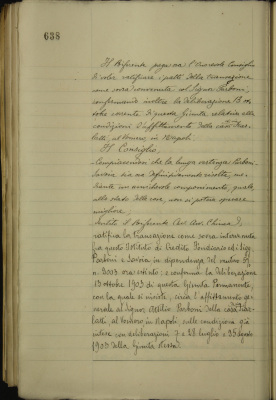 638
Il Referente prega ora l'Onorevole Consiglio
di voler ratificare i patti della transazione
come sopra convenuta col Signor Parboni
confermando inoltre la deliberazione 13 ot-
tobre corrente di questa Giunta relativa alle
condizioni d'affittamento della casa
al Vomero, in Napoli.
Il Consiglio,
Compiacendosi che la lunga vertenza Parboni
Savoia sia ora definitivamente risolta, me-
diante un amichevole componimento, quale
allo stato delle cose, non si poteva sperare
migliore;
Sentito il Referente Cav. Avv.
ratifica la transazione come sopra intervenuta
fra questo Istituto di Credito Fondiario ed i Sig.ri
Parboni e Savoia in dipendenza del mutuo N.
3003 ora estinto; e conferma la deliberazione
13 ottobre 1903 di questa Giunta Permanente,
con la quale si rinnova, circa l'affittamento ge-
nerale al Signor Attilio Parboni della casa
al Vomero in Napoli, sulle condizioni già
intese con deliberazioni 7 e 28 luglio e 25 agosto
1903 della Giunta stessa.